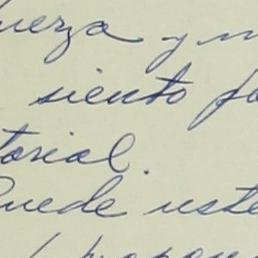 uerza y m
siento fa
torial.
Puede uste